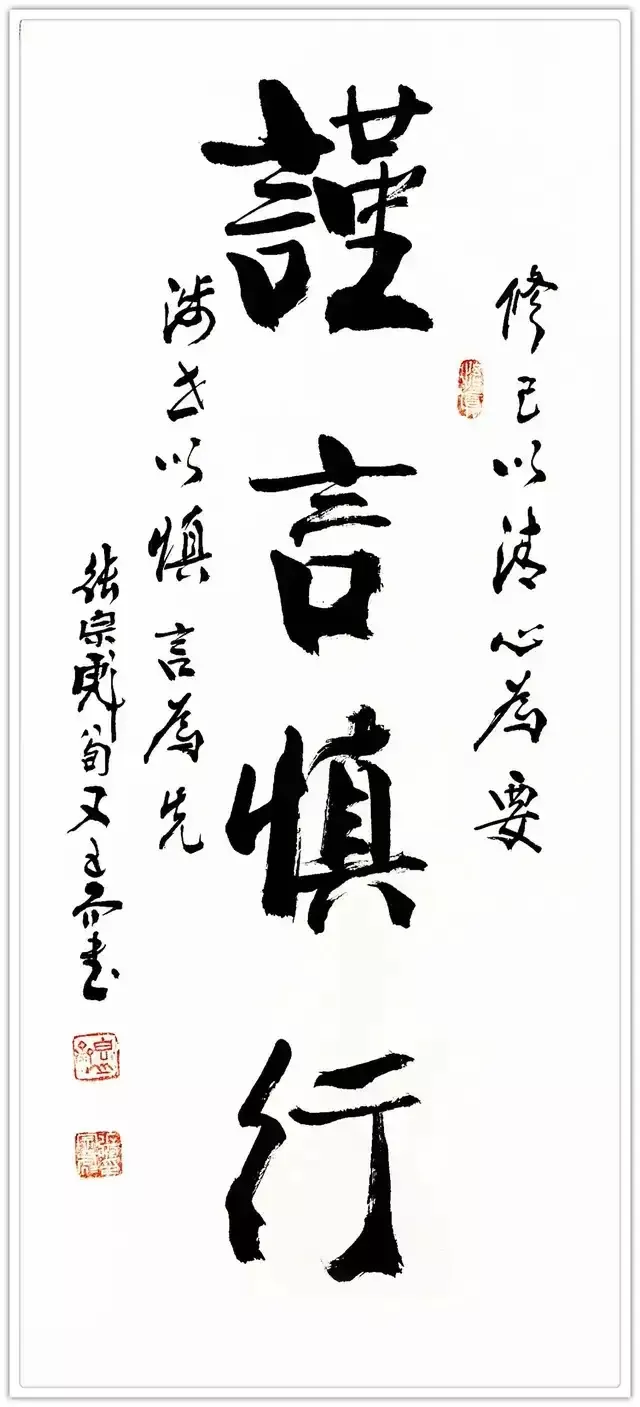 修己以清心為要
謹言慎行
涉世以慎言為先
張宗彪又書